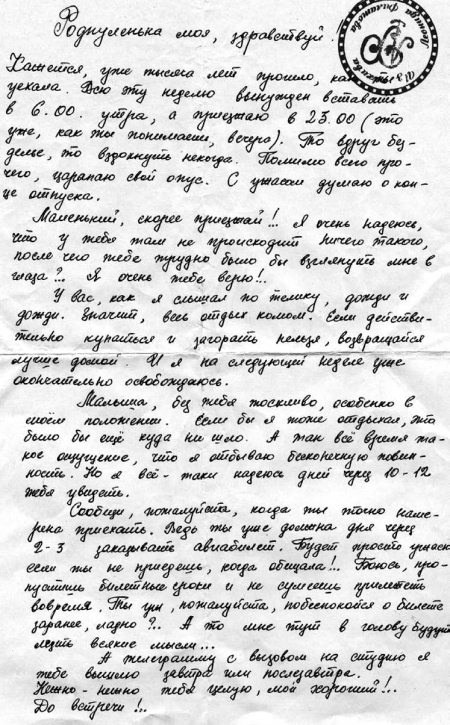 Роднуленька моя, здравствуй.
Кажется, уже тысяча лет прошло, как ты
уехала. Всю эту неделю вынужден вставать
в 6.00. утра, а приезжаю в 23.00 (это
уже, как ты понимаешь, вечера). То вдруг без-
делье, то вздохнуть некогда. Помимо всего про-
чего, царапаю свой опус. С ужасом думаю о кон-
це отпуска.
Маленький, скорее приезжай!.. Я очень надеюсь,
что у тебя там не происходит ничего такого,
после чего тебе трудно было бы взглянуть мне в
глаза?.. Я очень тебе верю!..
У вас, как я слышал по телику, дожди и
дожди. Значит, весь отдых комом. Если действи-
тельно купаться и загорать нельзя, возвращайся
лучше домой. И я на следующей неделе уже
окончательно освобождаюсь.
Малыша, без тебя тоскливо, особенно в
моём положении. Если бы я тоже отдыхал, это
было бы ещё куда ни шло. А так всё время та-
кое ощущение, что я отбываю бесконечную повин-
ность. Но я всё-таки надеюсь дней через 10-12
тебя увидеть.
Сообщи, пожалуйста, когда ты точно наме-
рена приехать. Ведь ты уже должна дня через
2-3 заказывать авиабилет. Будет просто ужасно
если ты не приедешь, когда обещала!.. Боюсь, про-
пустишь билетные сроки и не сумеешь прилететь
вовремя. Ты уж, пожалуйста, побеспокойся о билете
заранее, ладно?.. А то мне тут в голову будут
лезть всякие мысли...
А телеграмму с вызовом на студию я
тебе вышлю завтра или послезавтра.
Нежно-нежно тебя целую, мой хороший!..
До встречи!..
Леонида Филатова